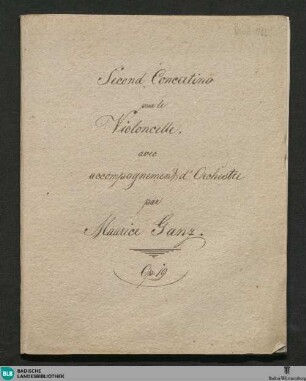 Second Concertino
pour le
Violoncelle,
avec
accompagnement d'Orchestre
par
Maurice Ganz.
Op. 19
BLB
BADISCHE
LANDESBIBLIOTHEK
Baden-Württemberg